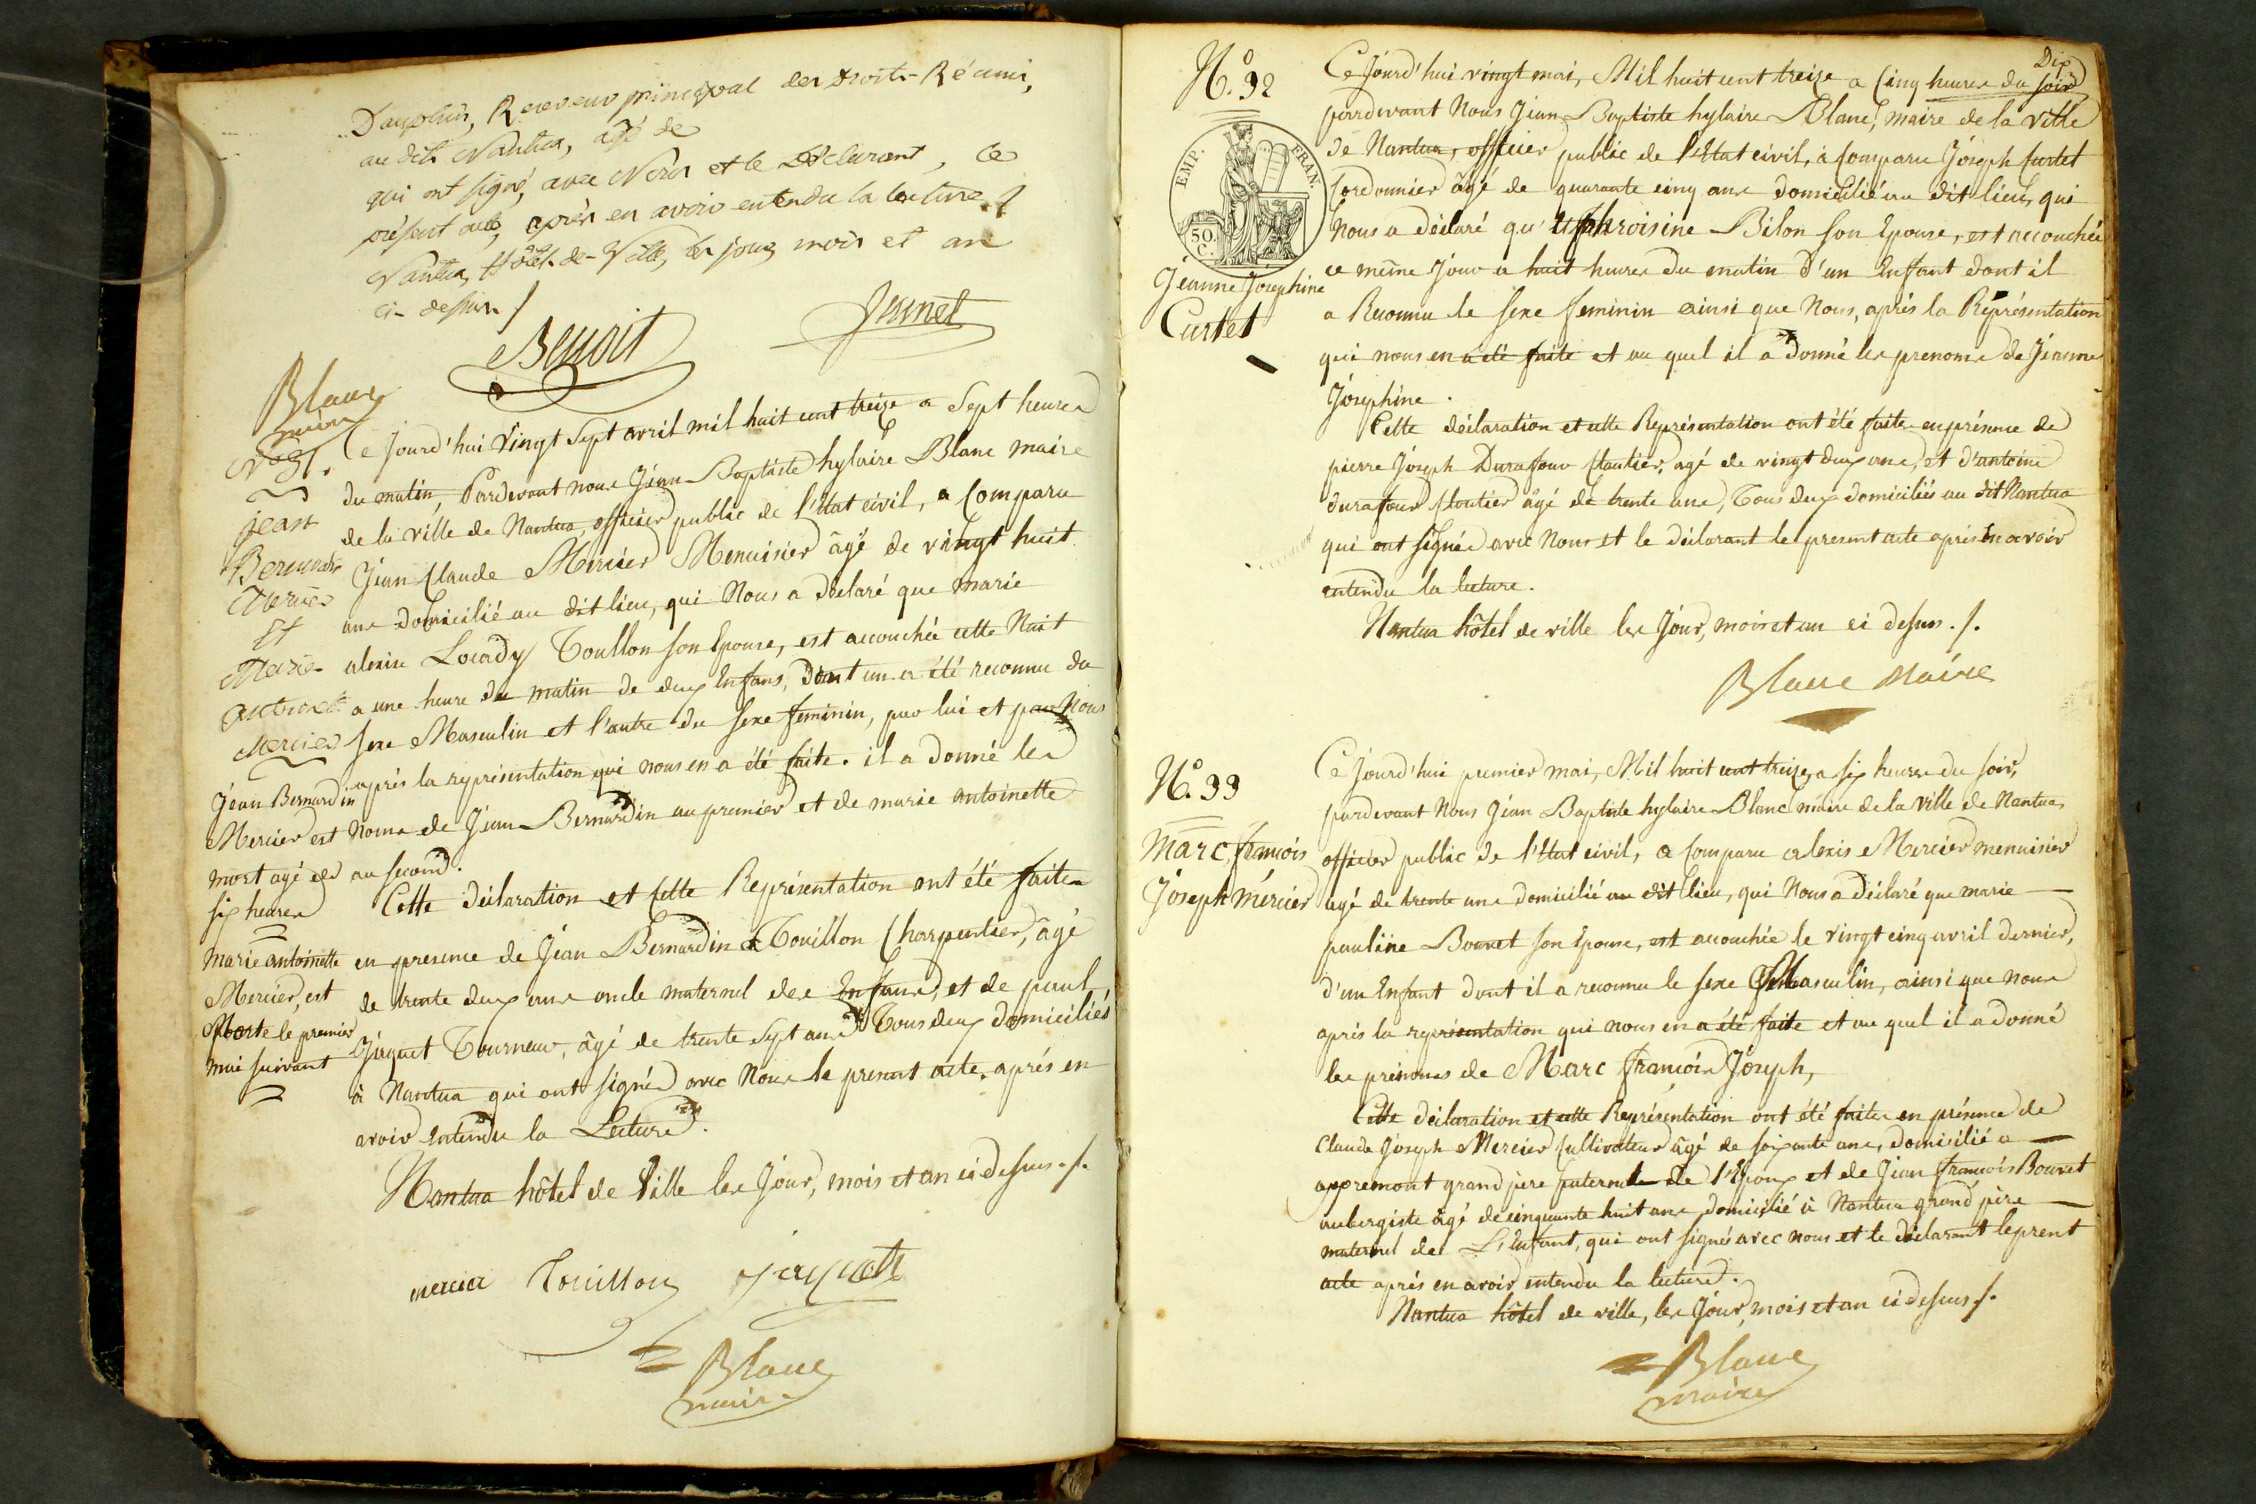 Dauphin, Receveur principal des Droits-Réunis,
au dit Nantua, âgé de
qui ont signé, avec Nous et le Déclarant, le
présent acte, après en avoir entendu la lecture./
Nantua, Hôtel-de-Ville, les jour, mois et an
ci-dessus /
Benoit
Jeunet
Blanc
maire
N.o 31.
jean
Bernardin
Mercier
Et
Marie
antoinette
Mercier
Jean Bernardin
Mercier est
mort agé de
six heures
Marie antoinette
Mercier, est
Morte le premier
mai suivant
Ce Jourd'hui Vingt Sept avril mil huit cent treize a Sept heures
du matin, Pardevant nous Jean Baptiste hylaire Blanc maire
de la ville de Nantua, officier public de l'Etat civil, a Comparu
Jean Claude Mercier Menuisier âgé de vingt huit
ans domicilié au dit lieu, qui Nous a déclaré que marie
alexise Locady Touillon son Epouse, est accouchée cette Nuit
a une heure du matin de deux Enfans, dont un a été reconnu du
sexe Masculin et l'autre du sexe feminin, par lui et par Nous
après la représentation qui nous en a été faite. il a donné les
Noms de Jean Bernardin au premier et de marie antoinette
au second.
Cette déclaration et cette Représentation ont été faites
en presence de Jean Bernardin Touillon Charpentier, âgé
de trente deux ans oncle maternel des Enfans, et de paul
Jaquet Tourneur, âgé de trente Sept ans Tous deux domiciliés
à Nantua qui ont signés avec Nous le present acte, après en
avoir entendu la Lecture.
Nantua hôtel de Ville les Jour, mois et an ci dessus ./.
mercier Touillon Jaquet
Blanc
maire
N.o 32
EMP. FRAN.
50.
C.
Jeanne Josephine
Curtet
Dix
Ce Jourd'hui vingt mai, Mil huit cent treize a Cinq heures du soir
pardevant Nous Jean Baptiste hylaire Blanc, maire de la ville
de Nantua, officier public de l'Etat civil, a Comparu Joseph Curtet
Cordonnier âgé de quarante cinq ans domicilié au dit lieu, qui
Nous a déclaré qu'Uphroisine Bilon son Epouse, est accouchée
ce même Jour a huit heures du matin d'un Enfant dont il
a Reconnu le sexe feminin ainsi que Nous, après la Représentation
qui nous en a été faite et au quel il a donné les prenoms de Jeanne
Joséphine.
Cette déclaration et cette Représentation ont été faites en présence de
pierre Joseph Durafour Cloutier, agé de vingt deux ans, et d'antoine
durafour Cloutier âgé de trente ans, Tous deux domiciliés au dit Nantua
qui ont signés avec Nous et le déclarant le present acte après En avoir
entendu la lecture.
Nantua hôtel de ville les Jour, mois et an ci dessus ./.
Blanc Maire
N.o 33
Marc, françois
Joseph Mercier
Ce Jourd'hui premier mai, Mil huit cent treize, a six heures du soir,
pardevant Nous Jean Baptiste hylaire Blanc maire de la Ville de Nantua,
officier public de l'Etat civil, a Comparu alexis Mercier menuisier
agé de trente ans domicilié au dit lieu, qui Nous a déclaré que marie
pauline Bouvet son Epouse, est accouchée le vingt cinq avril dernier,
d'un Enfant dont il a reconnu le sexe Masculin, ainsi que nous
après la représentation qui nous en a été faite et au quel il a donné
les prénoms de Marc françois Joseph,
Cette déclaration et cette Représentation ont été faites en présence de
Claude Joseph Mercier Cultivateur âgé de soixante ans, domicilié a
appremont grand père paternel de l'Epoux et de Jean françois Bouvet
aubergiste âgé de cinquante huit ans domicilié à Nantua grand père
maternel de L'Enfant, qui ont signés avec nous et le déclarant le prent
acte après en avoir entendu la lecture.
Nantua hôtel de ville, les Jour, mois et an ci dessus ./.
Blanc
maire